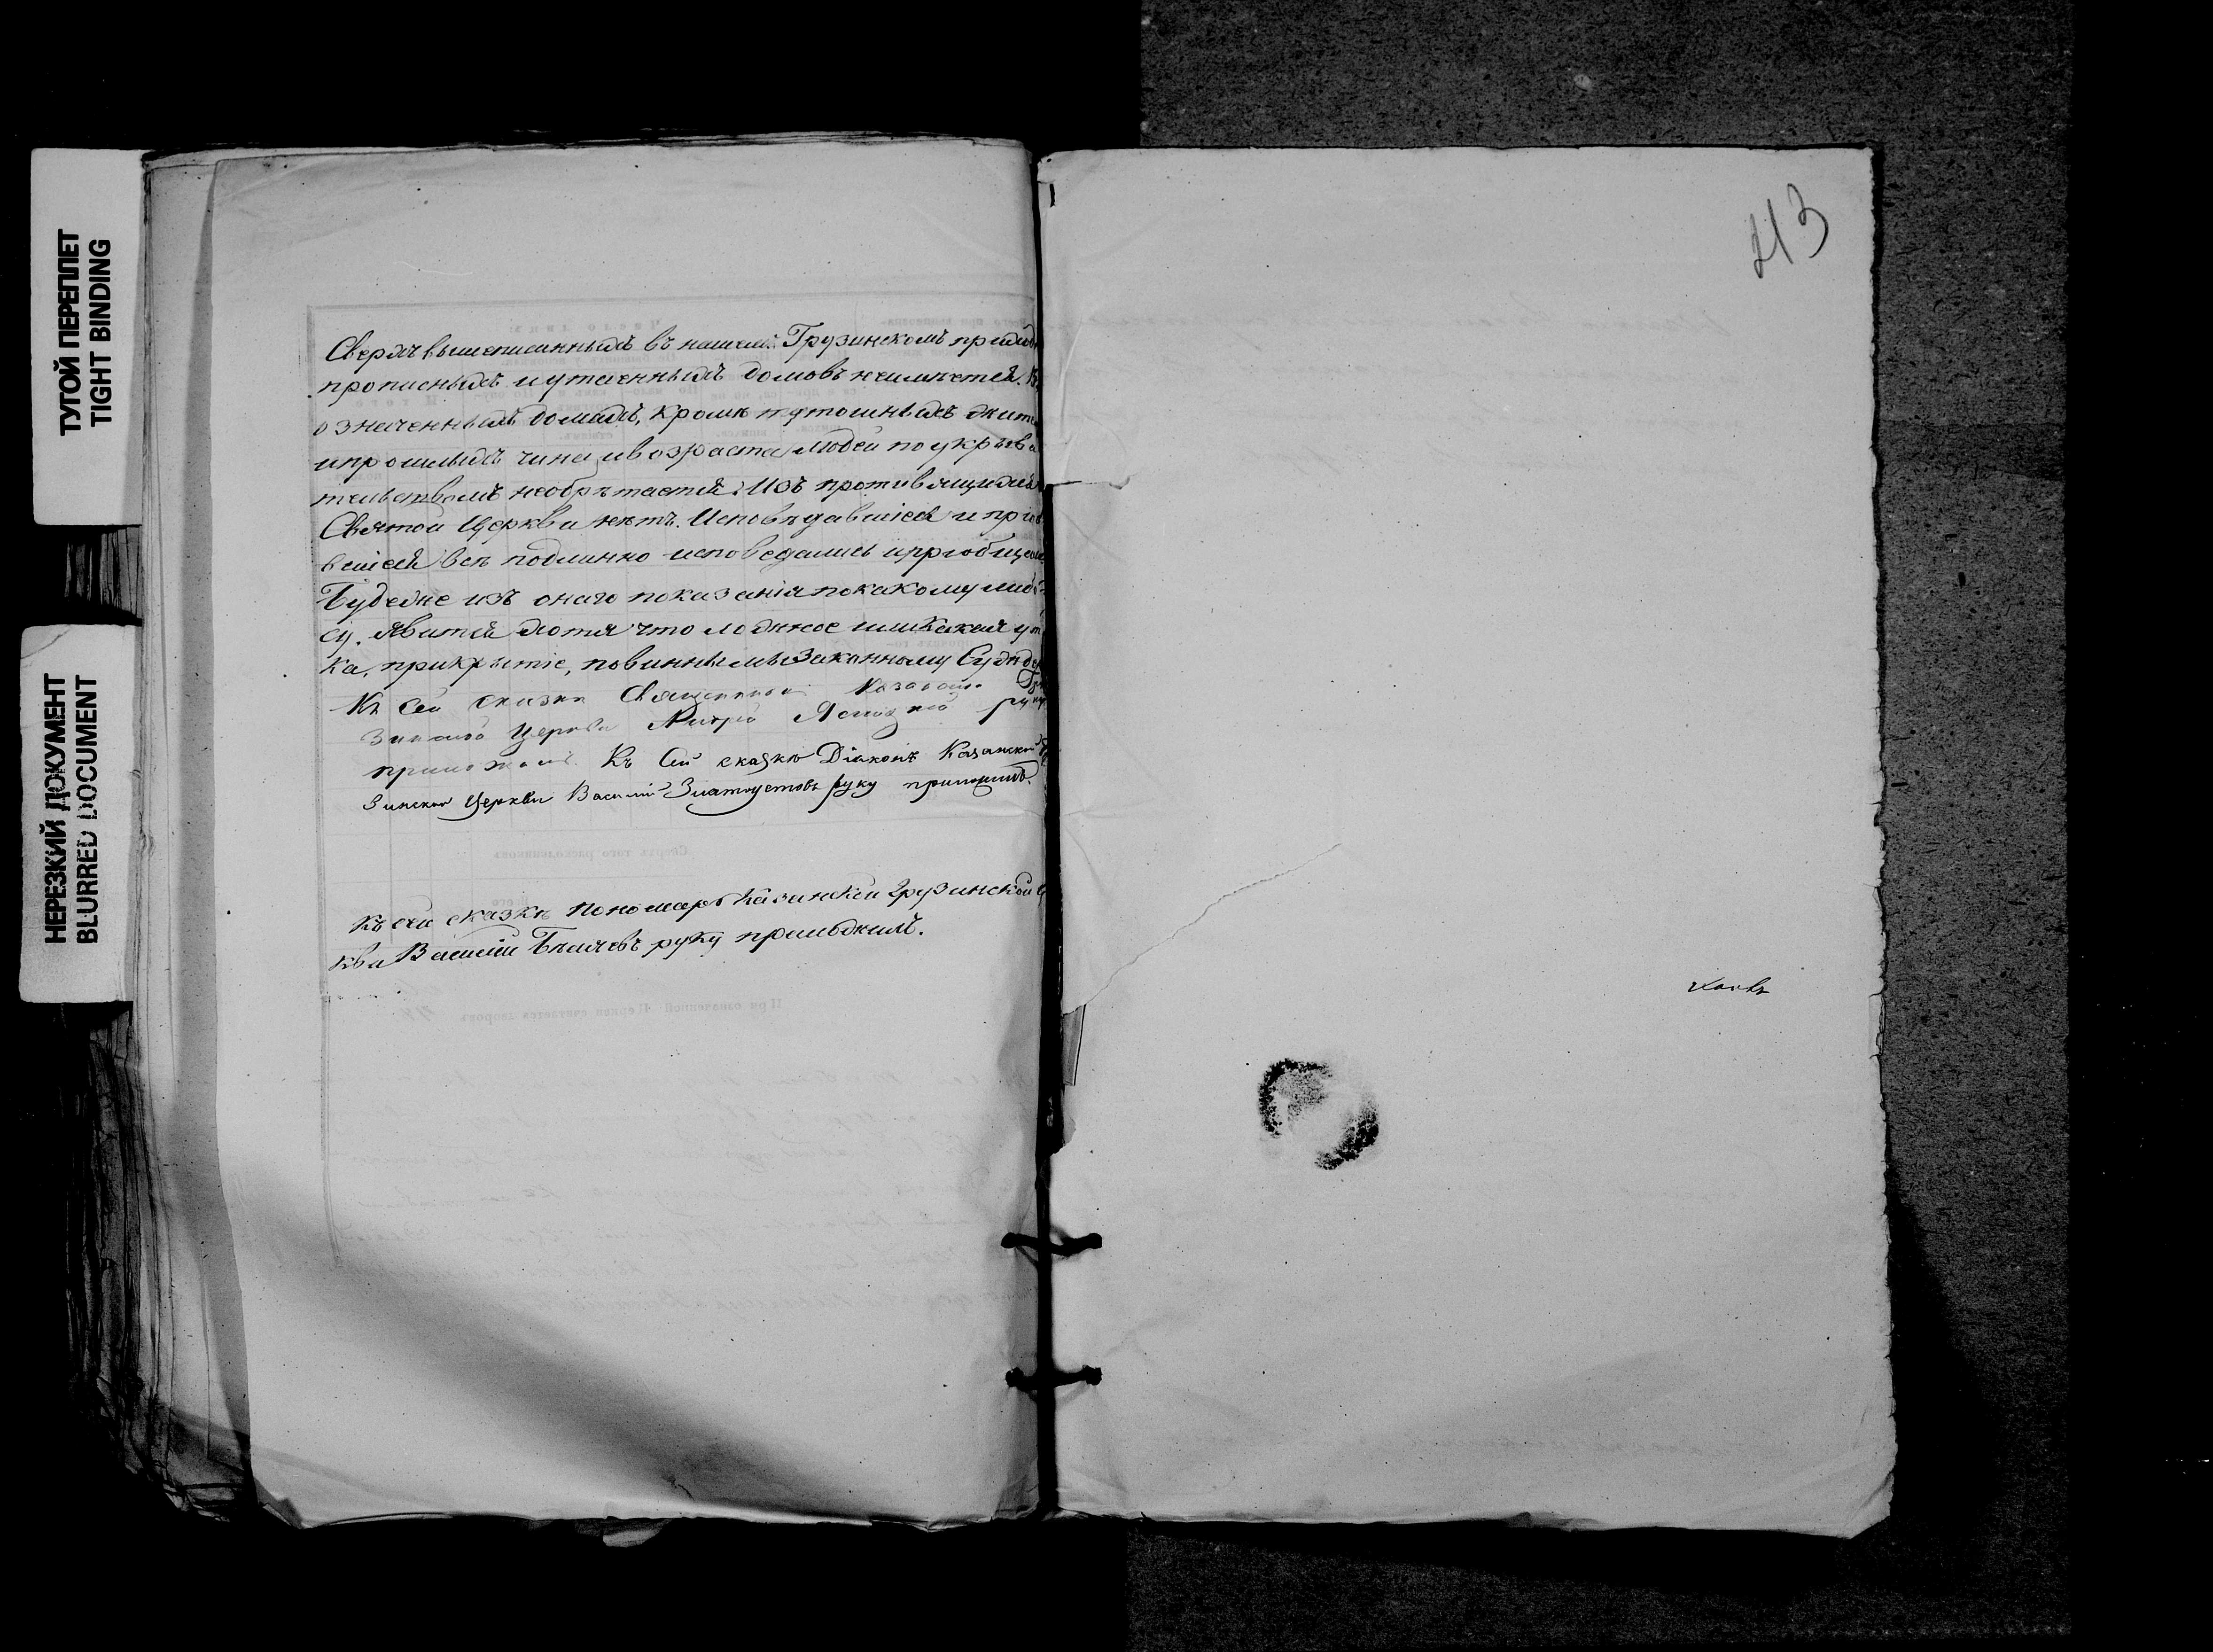 ТУГОЙ ПЕРЕПЛЕТ
TIGHT BINDING
НЕРЕЗКИЙ ДОКУМЕНТ
BLURRED DOCUMENT
Сверхъ вышеписанныхъ въ нашемъ Грузинскомъ приход
прописныхъ и утаенныхъ домовъ неимѣется. В
означенныхъ домахъ, кромѣ тутошныхъ жите
ипрошлыхъ чина ивозраста людей по укрыва
тельствомъ необрѣтается; Изъ противящихся
Святой Церкви нѣтъ. Исповѣдавшіеся и пріоб
вшіеся всѣ подлинно исповедались ипріобщи
Будеже изъ онаго показанія покакому либо
су. Явится хотя что ложное или какая ут
ка, прикрытіе, повинны мы Законному Суду
Къ сей сказкѣ Священникъ Казанско Гру
зинской Церкви руку
приложилъ. Къ сей сказкѣ Діаконъ Казанской
зинской Церкви Василій Златоустовъ руку приложилъ.
Сверхъ того раскольниковъ
Къ сей сказкѣ пономарь Казанской Грузинской Ц
кви Василій Бѣляевъ руку приложилъ.
При означенной Церкви считается дворовъ
213